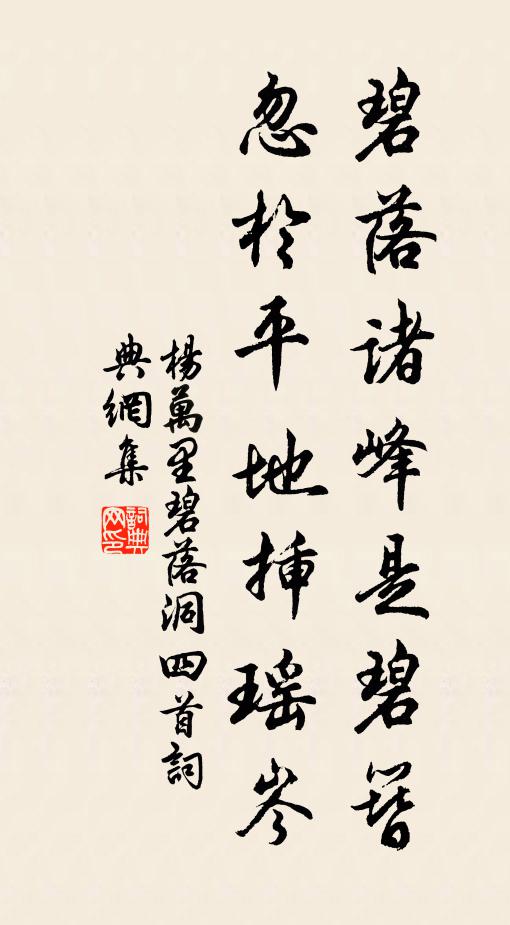 碧落諸峰是碧簪
忽於平地揷瑶岑
楊萬里碧落洞四首詞
典網集
詞典
网印